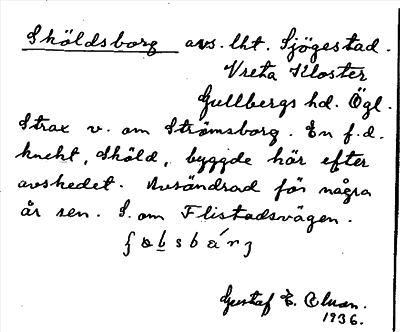 Sköldsborg avs. lht. Sjögestad.
Vreta Kloster
Gullbergs hd. Ögl.
Strax v. om Strömsborg. En f.d.
knekt, Sköld, byggde här efter
avskedet. Avsöndrad för några
år sen. S. om Flistadsvägen.
Gustaf E.
1936.